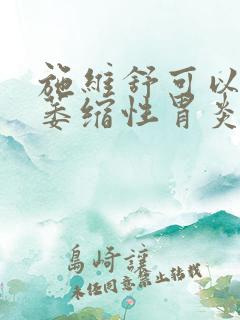 施維舒可以
萎缩性胃炎
島崎讓
未经同意禁止转载